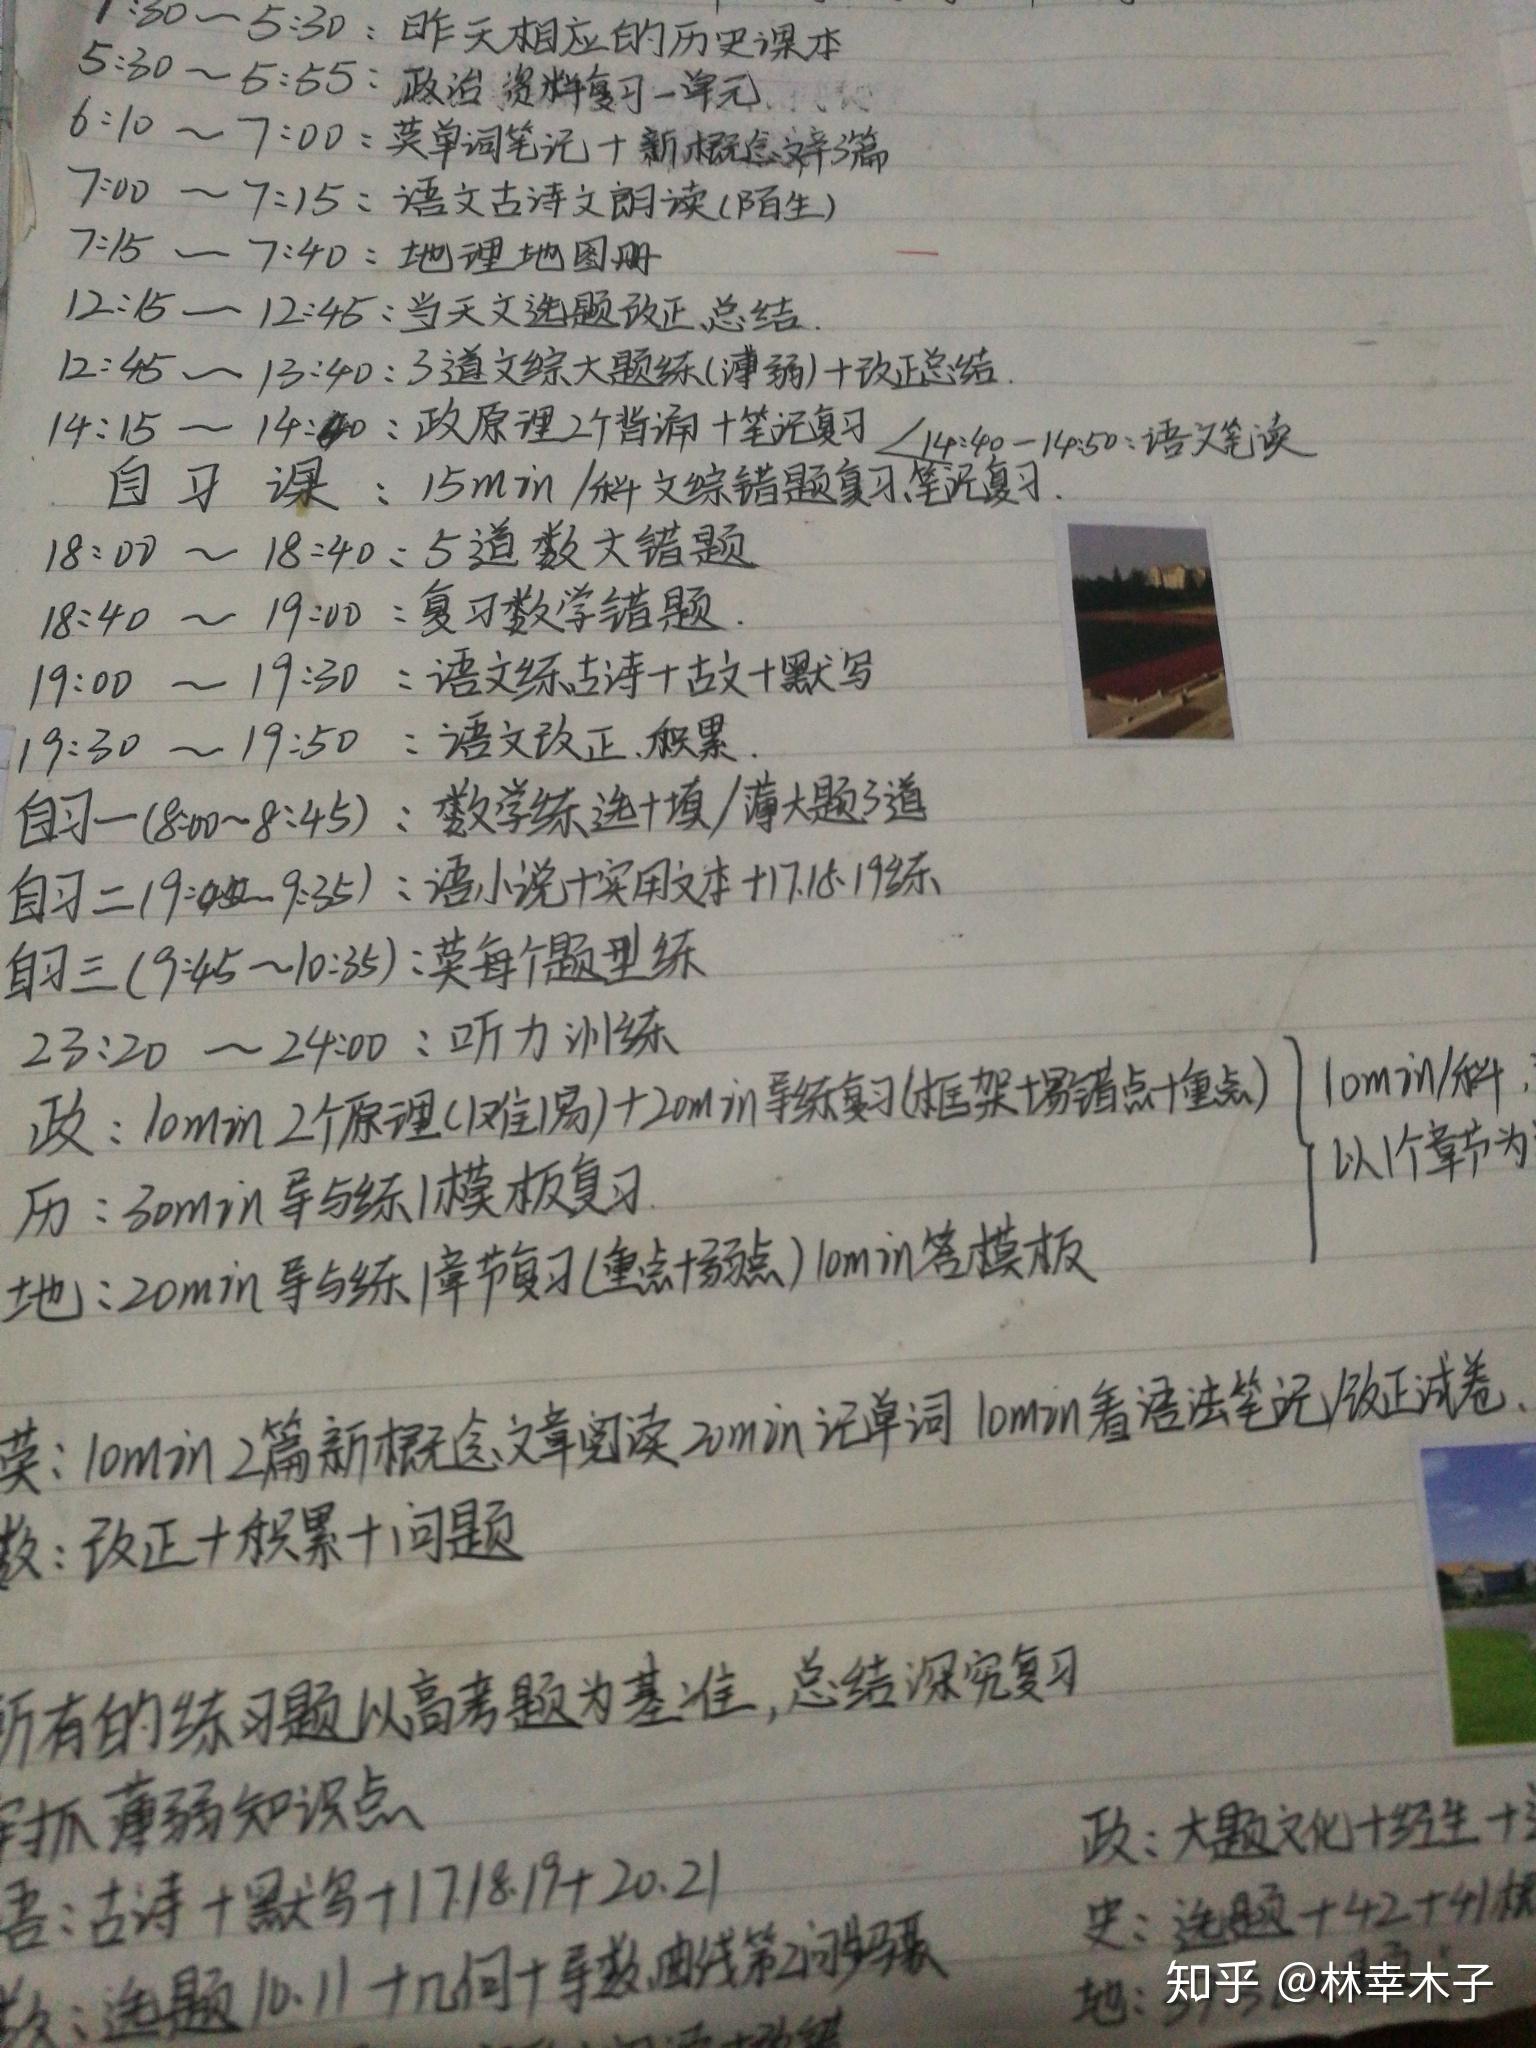 :30～5:30：昨天相应的历史课本
5:30～5:55：政治资料复习一单元
6:10～7:00：英单词笔记+新概念文章3篇
7:00～7:15：语文古诗文朗读(陌生)
7:15～7:40：地理地图册
12:15～12:45：当天文选题改正、总结.
12:45～13:40：3道文综大题练(薄弱)+改正总结.
14:15～14:40：政原理2个背诵+笔记复习 <14:40-14:50：语文笔读
自习课：15min/科文综错题复习、笔记复习.
18:00～18:40：5道数大错题
18:40～19:00：复习数学错题.
19:00～19:30：语文练古诗+古文+默写
19:30～19:50：语文改正、积累.
自习一(8:00～8:45)：数学练选+填/薄大题3道
自习二(9: ～9:35)：语小说+实用文本+17.18.19练
自习三(9:45～10:35)：英每个题型练
23:20～24:00：听力训练
政：10min 2个原理(1难1易)+20min导练复习(框架+易错点+重点)
历：30min导与练1模板复习.
地：20min导与练1章节复习(重点+弱点)10min答模板
10min/科,
以1个章节为
英：10min 2篇新概念文章阅读 20min记单词 10min看语法笔记/改正试卷.
数：改正+积累+问题
所有的练习题以高考题为基准,总结深究复习
抓薄弱知识点
语：古诗+默写+17.18.19+20.21
数：选题10.11+几何+导数、曲线第2问步骤
政：大题文化+经生+
史：选题+42+41
地：
知乎 @林幸木子